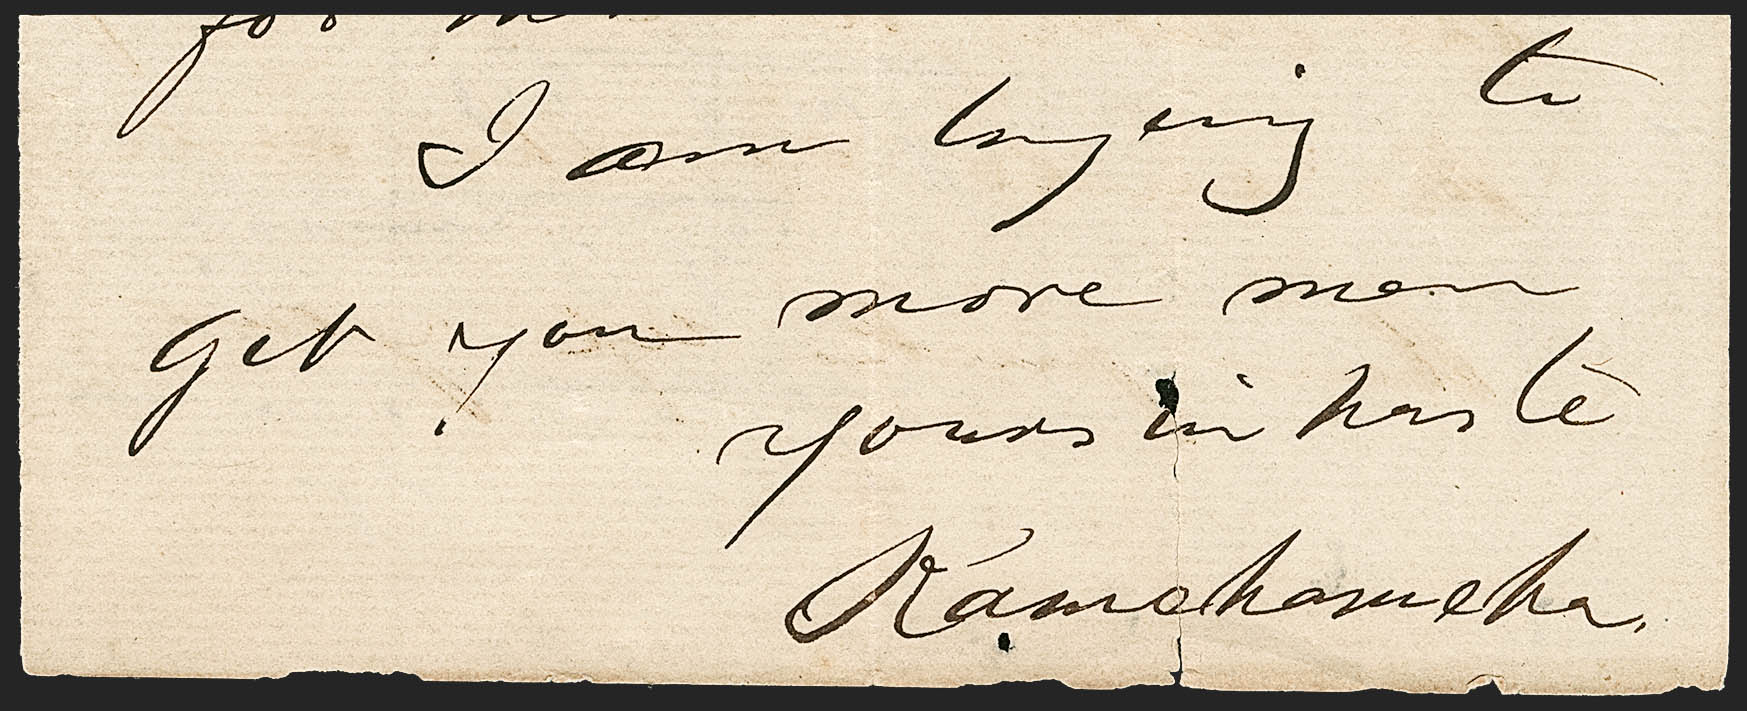 I am trying to
get you more men
yours in haste
Kamehameha.